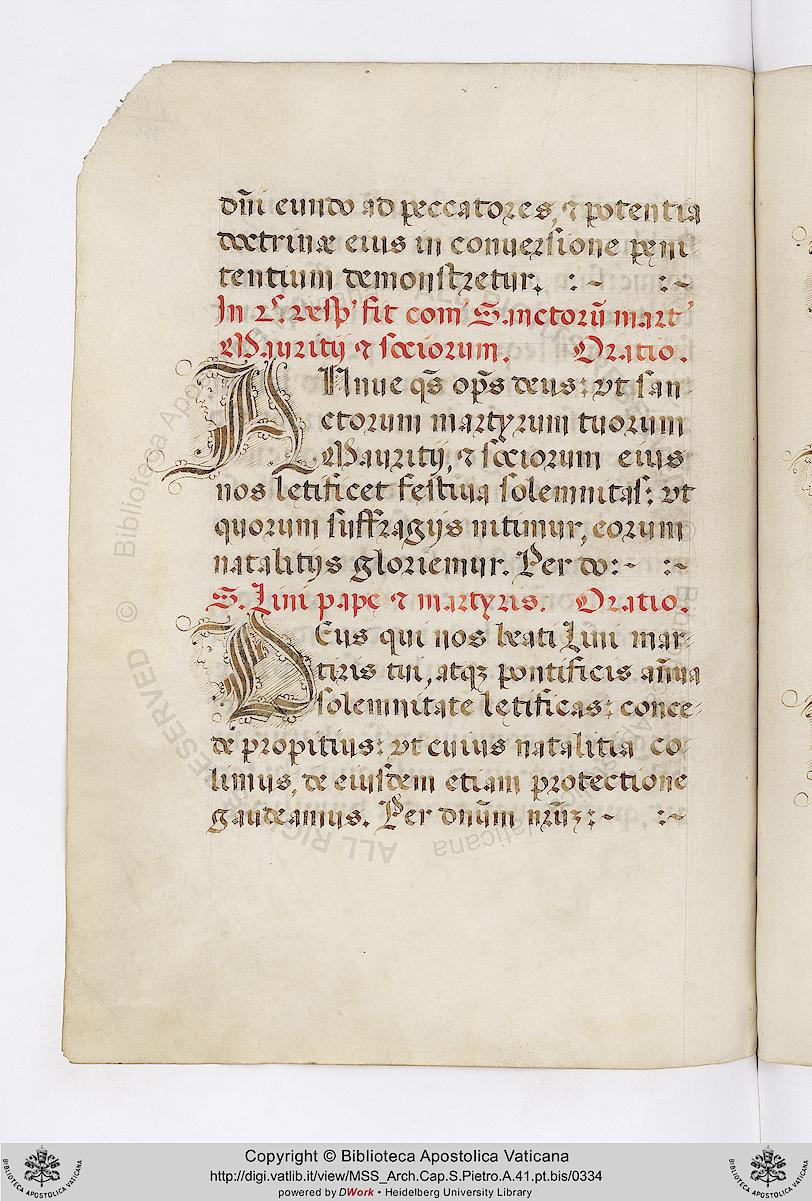 dñi eundo ad peccatores, ⁊ potentia
doctrinæ eius in conuersione peni
tentium demonstretur. :~ :~
In 2ⁱˢ Vesp' fit com' Sanctorũ mart'
Mauritij ⁊ sociorum. Oratio.
ANnue qs̃ ops̃ deus: vt san
ctorum martyrum tuorum
Mauritij, ⁊ sociorum eius
nos letificet festiua solemnitas: vt
quorum suffragijs nitimur, eorum
natalitijs gloriemur. Per do:~ :~
S. Lini papę ⁊ martyris. Oratio.
DEus qui nos beati Lini mar-
tiris tui, atqꝫ pontificis añua
solemnitate letificas: conce-
de propitius: vt cuius natalitia co-
limus, de eiusdem etiam protectione
gaudeamus. Per dnũm nr̃ũꝫ:~ :~
Copyright © Biblioteca Apostolica Vaticana
http://digi.vatlib.it/view/MSS_Arch.Cap.S.Pietro.A.41.pt.bis/0334
powered by DWork • Heidelberg University Library